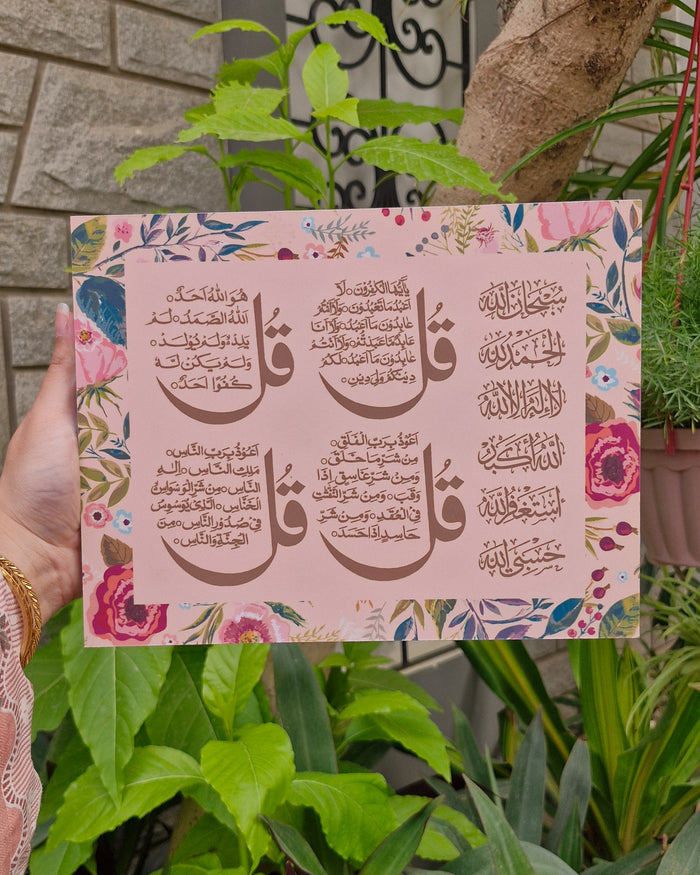 سُبْحَانَ اللّٰه
الْحَمْدُ لِلّٰه
لَا إِلٰهَ إِلَّا اللّٰه
اَللّٰهُ أَكْبَر
أَسْتَغْفِرُ اللّٰه
حَسْبِيَ اللّٰه
قُلْ
يٰأَيُّهَا الْكٰفِرُوْنَ ۝ لَا
اَعْبُدُ مَا تَعْبُدُوْنَ ۝ وَلَا اَنْتُمْ
عَابِدُوْنَ مَا اَعْبُدُ ۝ وَلَا اَنَا
عَابِدٌ مَّا عَبَدْتُّمْ ۝ وَلَا اَنْتُمْ
عَابِدُوْنَ مَا اَعْبُدُ ۝ لَكُمْ
دِيْنُكُمْ وَلِيَ دِيْنِ ۝
قُلْ
هُوَ اللّٰهُ اَحَدٌ ۝
اَللّٰهُ الصَّمَدُ ۝ لَمْ
يَلِدْ ۝ وَلَمْ يُوْلَدْ ۝
وَلَمْ يَكُنْ لَّهٗ
كُفُوًا اَحَدٌ ۝
قُلْ
اَعُوْذُ بِرَبِّ الْفَلَقِ ۝
مِنْ شَرِّ مَا خَلَقَ ۝
وَمِنْ شَرِّ غَاسِقٍ اِذَا
وَقَبَ ۝ وَمِنْ شَرِّ النَّفّٰثٰتِ
فِى الْعُقَدِ ۝ وَمِنْ شَرِّ
حَاسِدٍ اِذَا حَسَدَ ۝
قُلْ
اَعُوْذُ بِرَبِّ النَّاسِ ۝
مَلِكِ النَّاسِ ۝ اِلٰهِ
النَّاسِ ۝ مِنْ شَرِّ الْوَسْوَاسِ
الْخَنَّاسِ ۝ الَّذِىْ يُوَسْوِسُ
فِىْ صُدُوْرِ النَّاسِ ۝ مِنَ
الْجِنَّةِ وَالنَّاسِ ۝